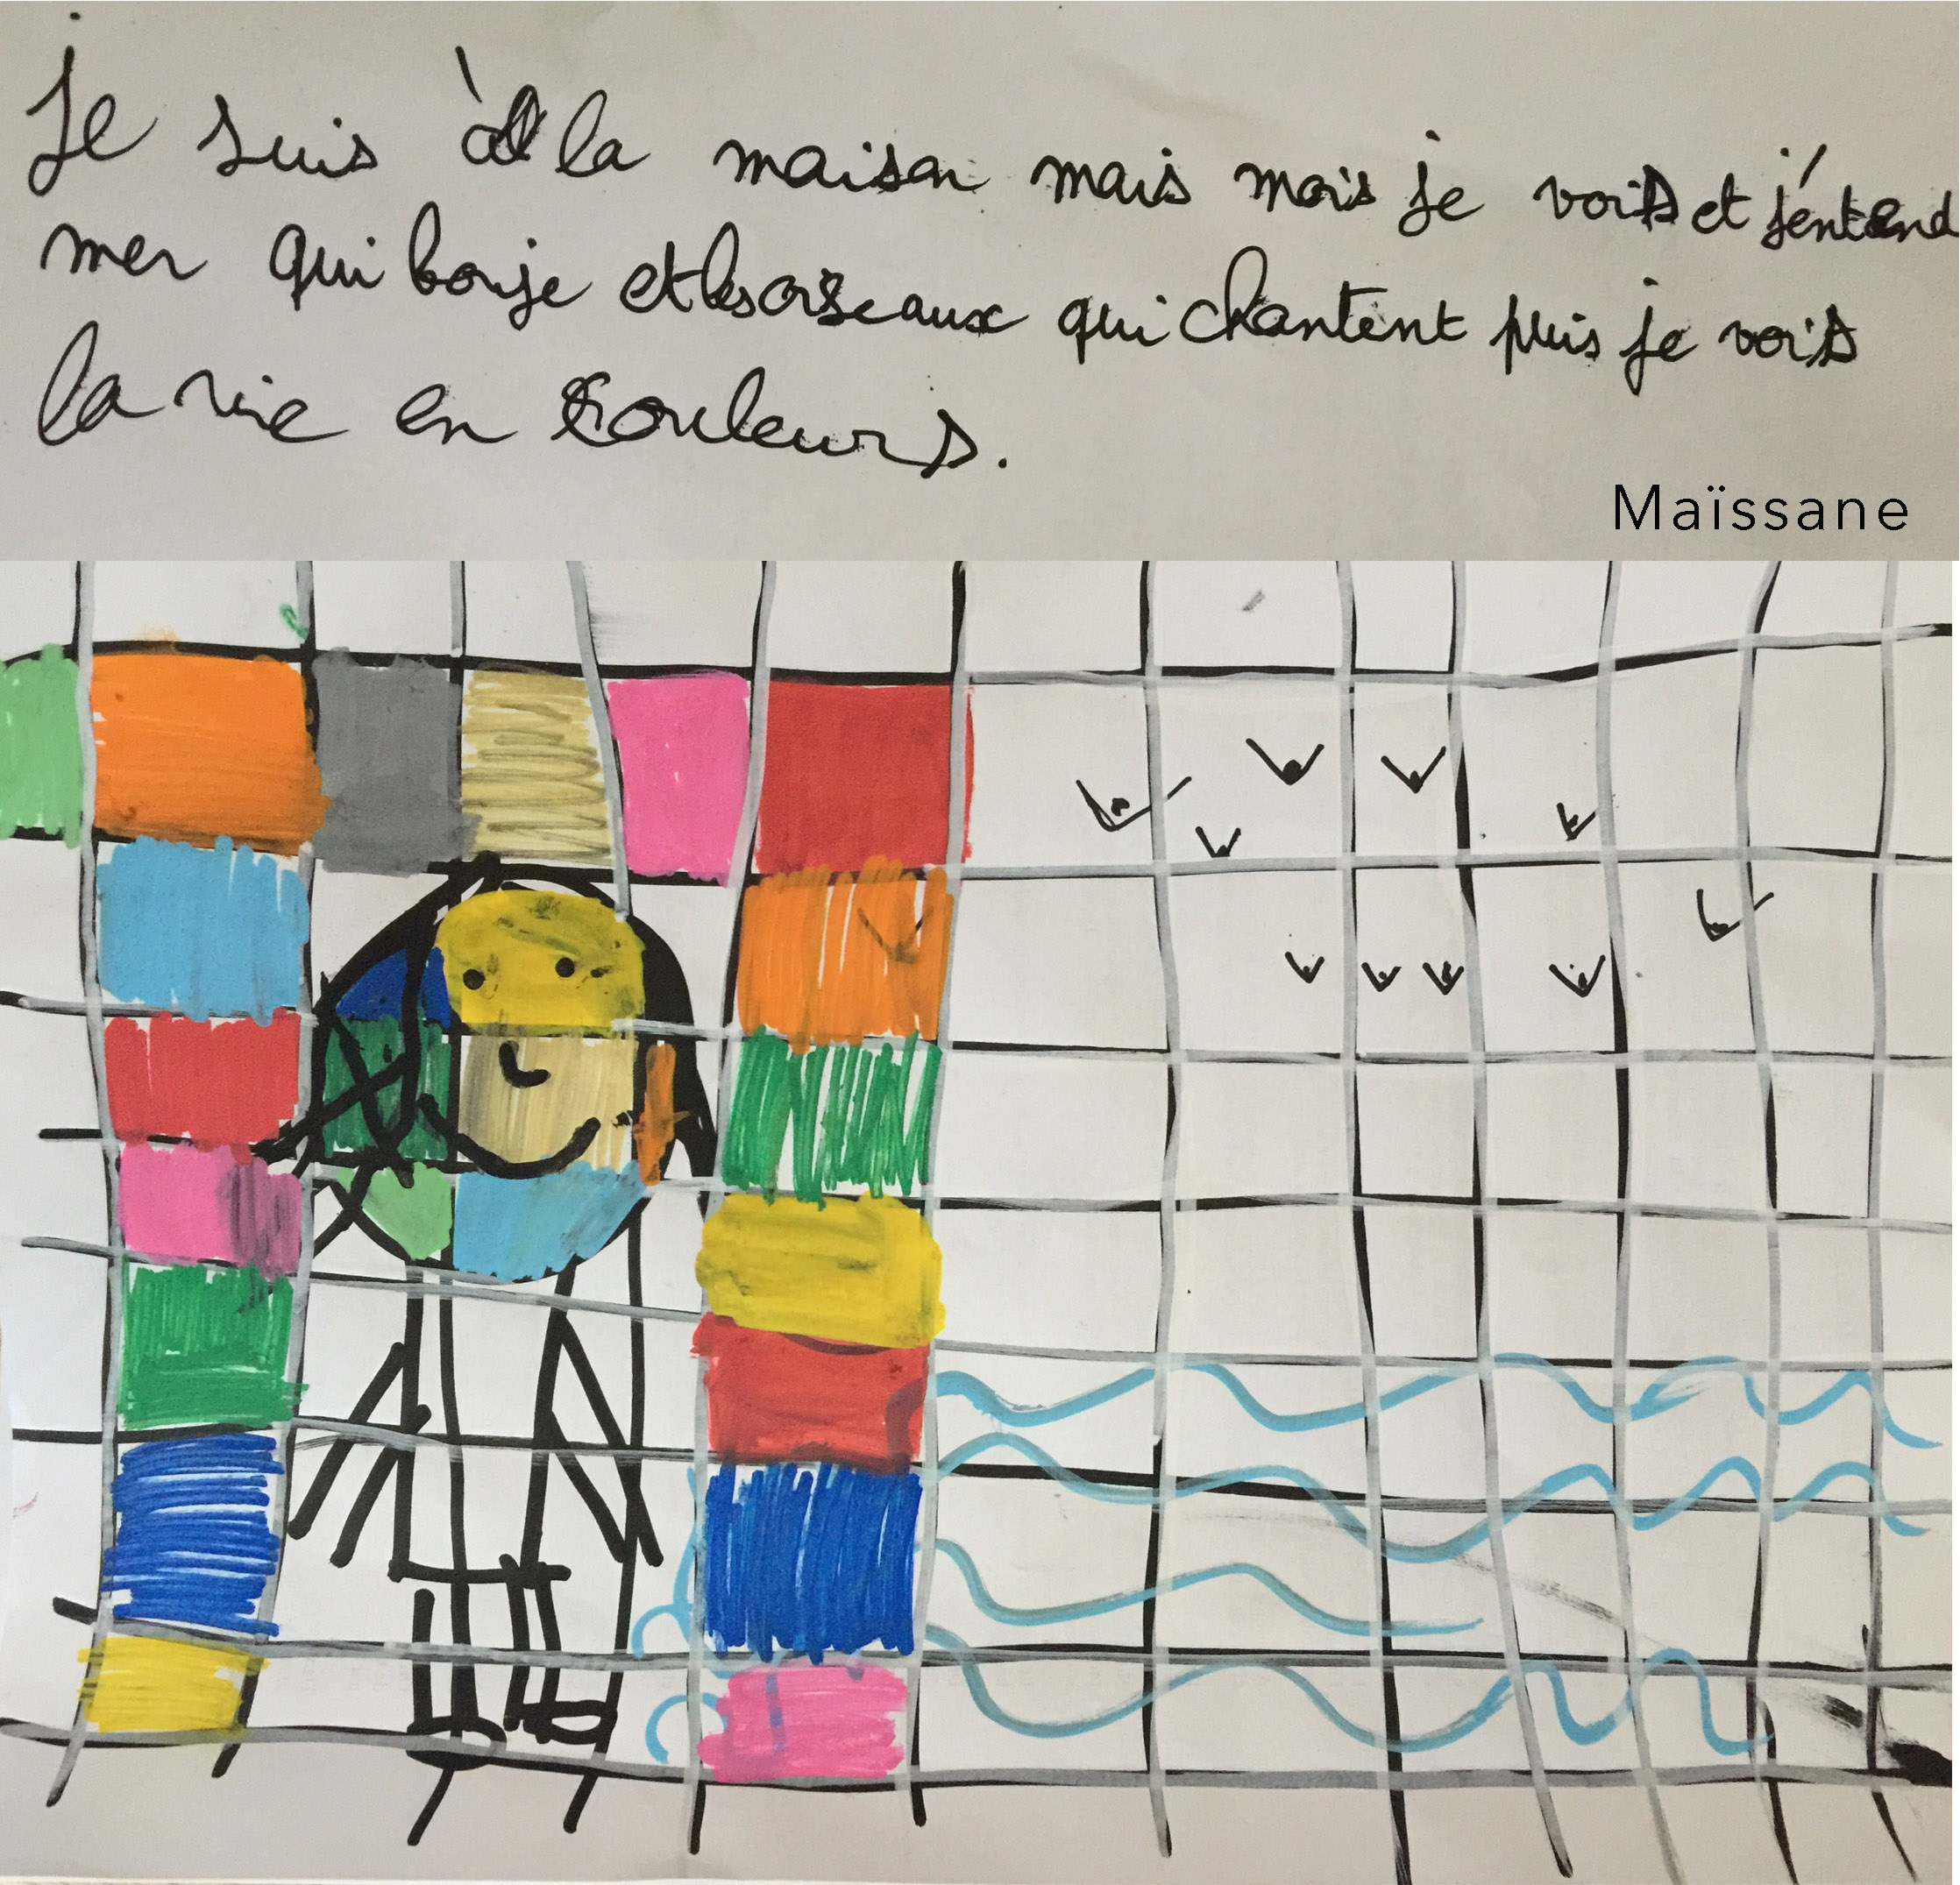 Je suis à la maison mais mois je vois et j'entend
mer qui bouje et les oiseaux qui chantent puis je vois
la vie en couleurs.
Maïssane